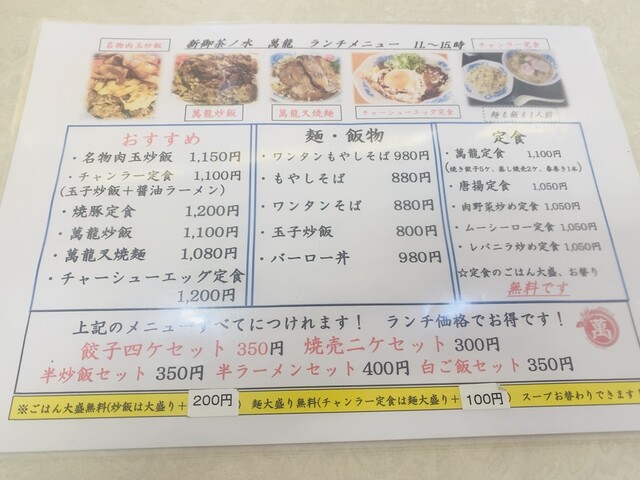 名物肉玉炒飯
新御茶ノ水 萬龍 ランチメニュー 11.~15.時
チャンラー定食
萬龍炒飯
萬龍叉焼麺
チャーシューエッグ定食
麺も飯も1人前
おすすめ
・名物肉玉炒飯 1,150円
・チャンラー定食 1,100円
(玉子炒飯+醤油ラーメン)
・焼豚定食 1,200円
・萬龍炒飯 1,100円
・萬龍叉焼麺 1,080円
・チャーシューエッグ定食
1,200円
麺・飯物
・ワンタンもやしそば 980円
・もやしそば 880円
・ワンタンそば 880円
・玉子炒飯 800円
・バーロー丼 980円
定食
・萬龍定食 1,100円
(焼き餃子5ケ、蒸し焼売2ケ、春巻き1本)
・唐揚定食 1,050円
・肉野菜炒め定食 1,050円
・ムーシーロー定食 1,050円
・レバニラ炒め定食 1,050円
☆定食のごはん大盛、お替り
無料です
上記のメニューすべてにつけれます! ランチ価格でお得です!
餃子四ケセット 350円 焼売二ケセット 300円
半炒飯セット 350円 半ラーメンセット 400円 白ご飯セット 350円
萬
※ごはん大盛無料(炒飯は大盛り+ 200円 ) 麺大盛り無料(チャンラー定食は麺大盛り+ 100円 ) スープお替わりできます!